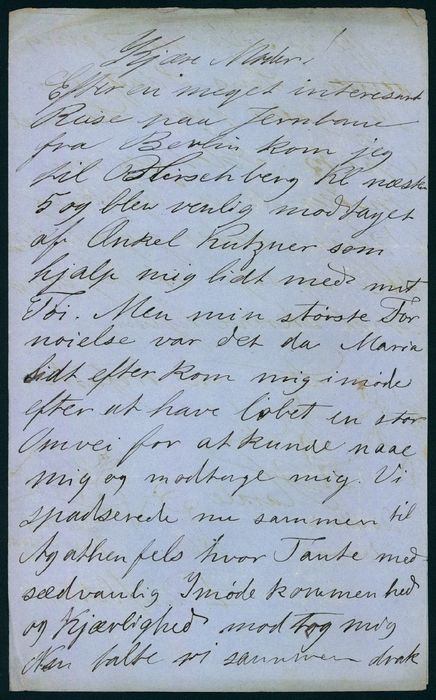 Kjære Moder!
Efter en meget interesant
Reise paa Jernbane
fra Berlin kom jeg
til Hirschberg Kl næsten
5 og blev venlig modtaget
af Onkel Kutzner som
hjalp mig lidt med mit
Töi. Men min störste For
nöielse var det da Maria
lidt efter kom mig imöde
efter at have löbet en stor
Omvei for at kunde naae
mig og modtage mig. Vi
spadserede nu sammen til
Agathenfels hvor Tante med
sædvanlig Imödekommenhed
og Kjærlighed modtog mig
Nu talte vi sammen drak